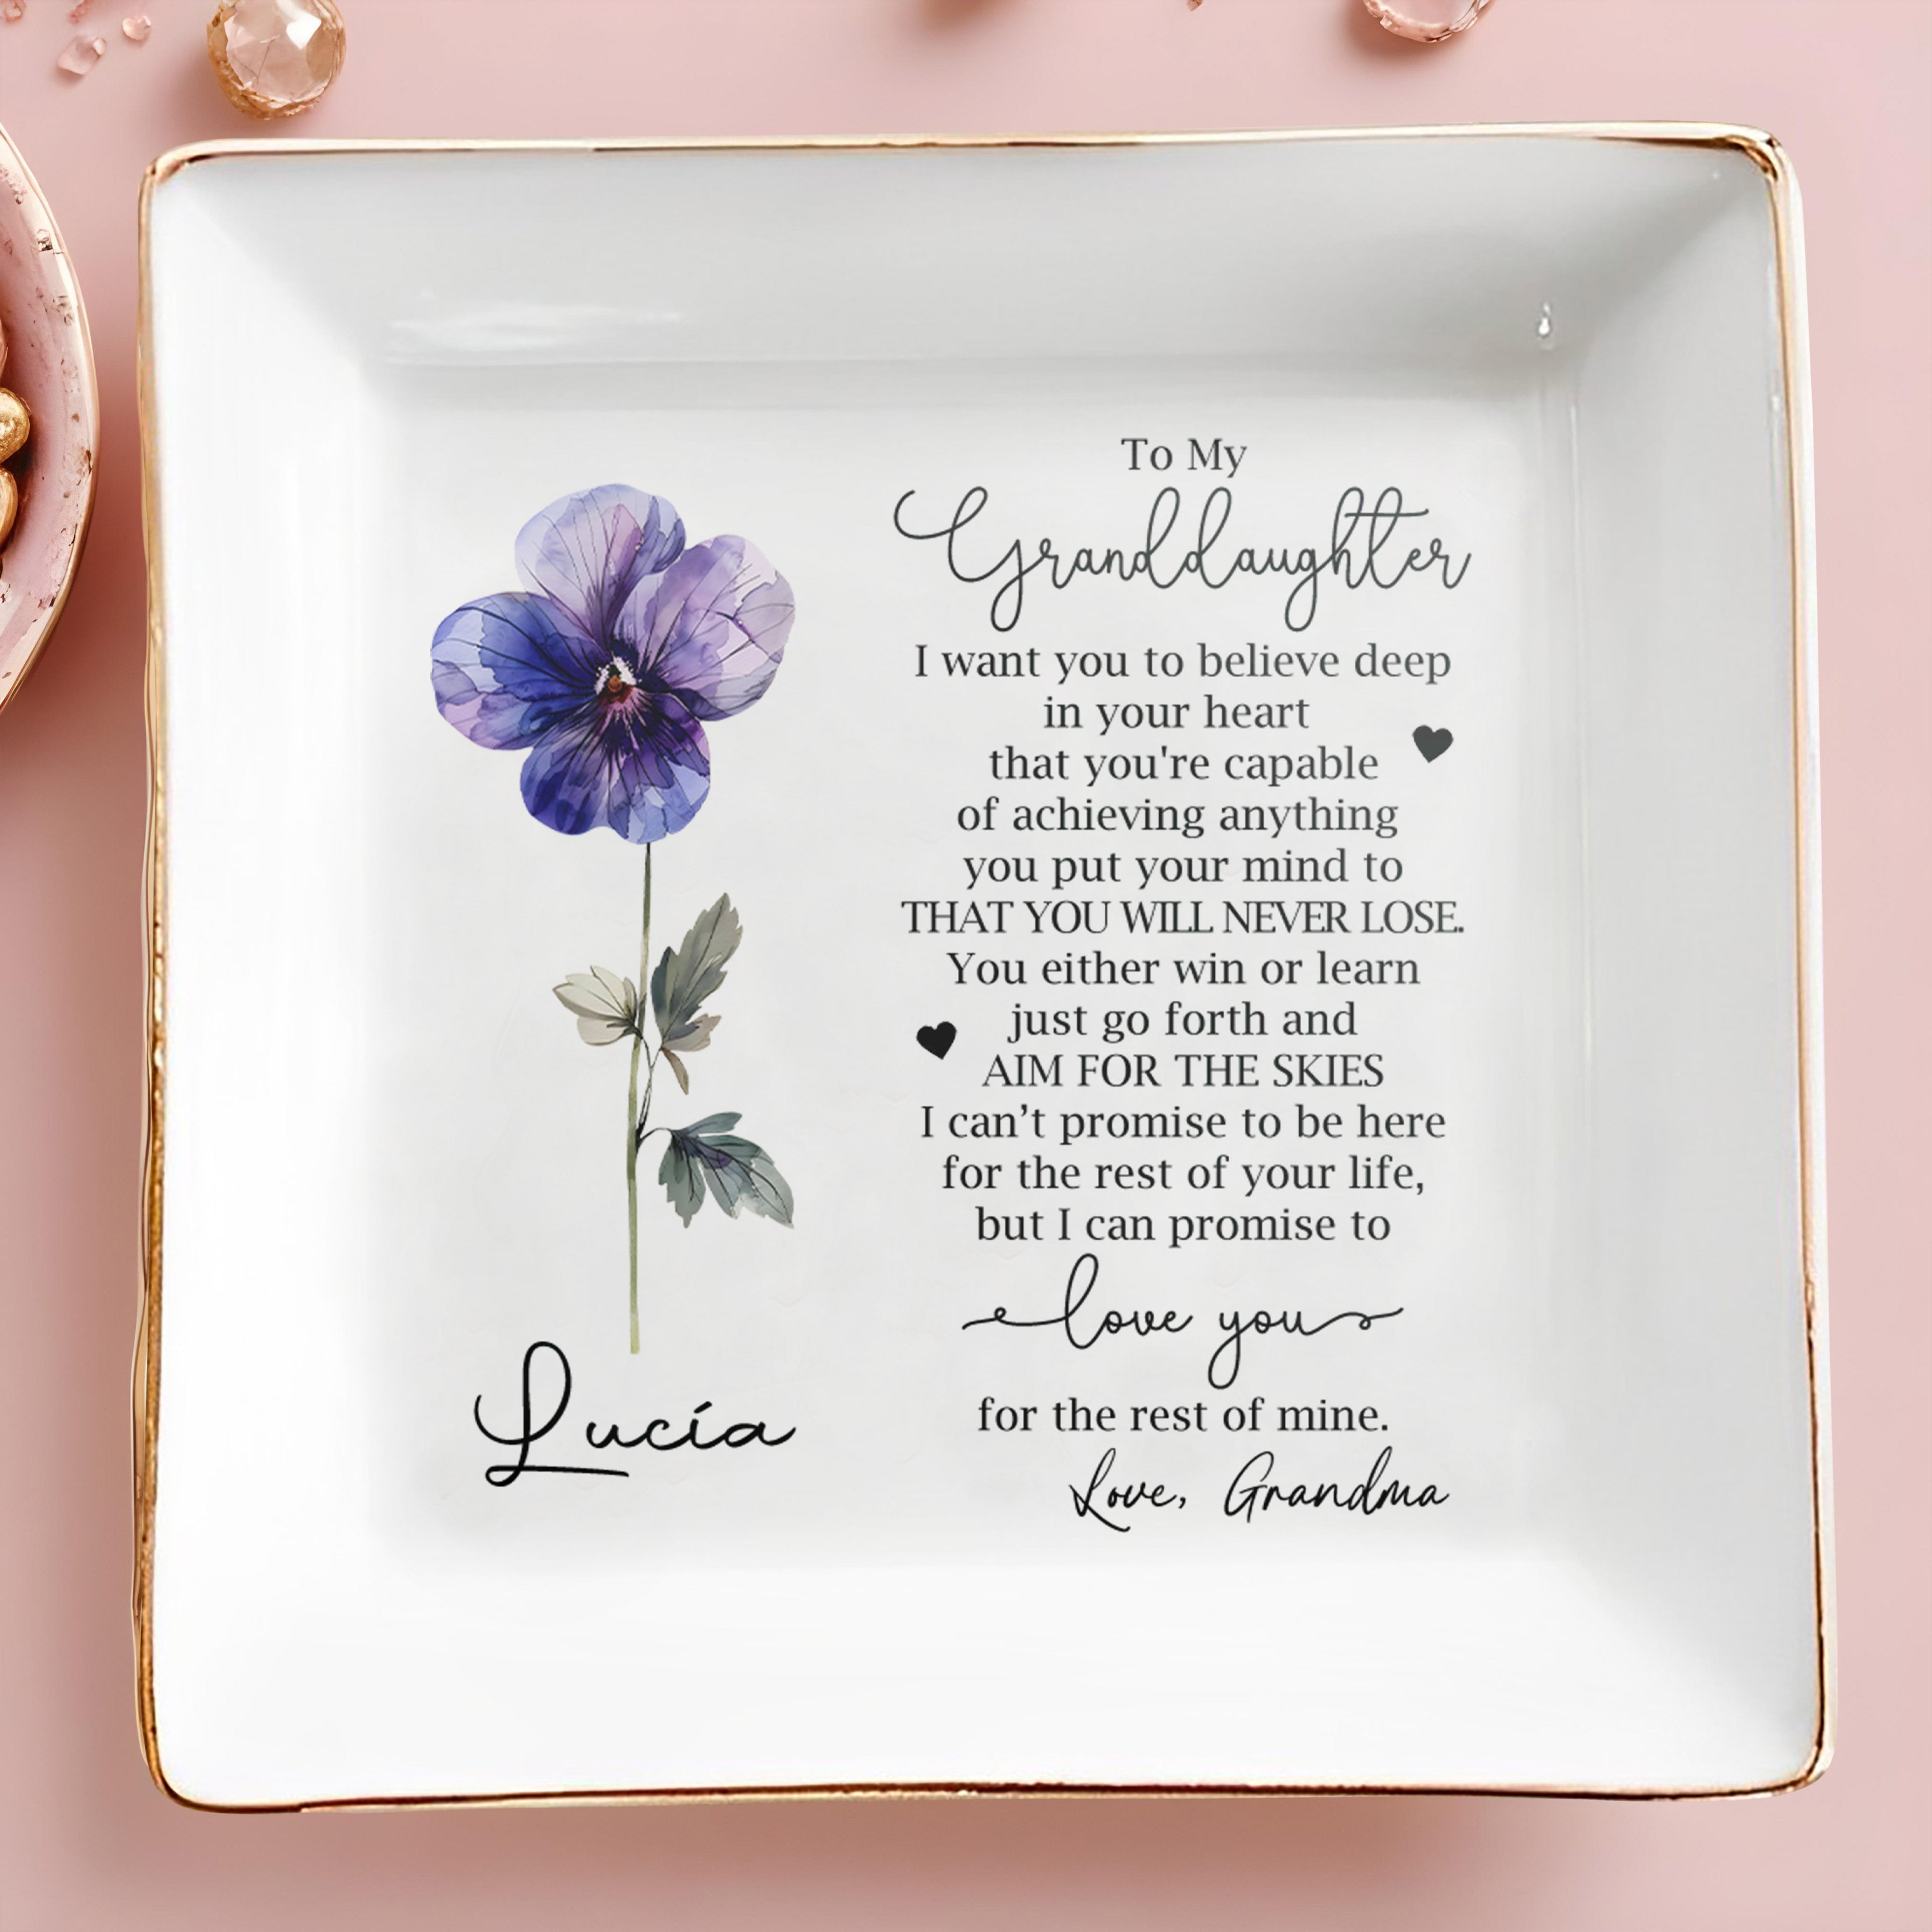 To My
Granddaughter
I want you to believe deep
in your heart
that you're capable
of achieving anything
you put your mind to
THAT YOU WILL NEVER LOSE.
You either win or learn
just go forth and
AIM FOR THE SKIES
I can’t promise to be here
for the rest of your life,
but I can promise to
love you
for the rest of mine.
Love, Grandma
Lucía